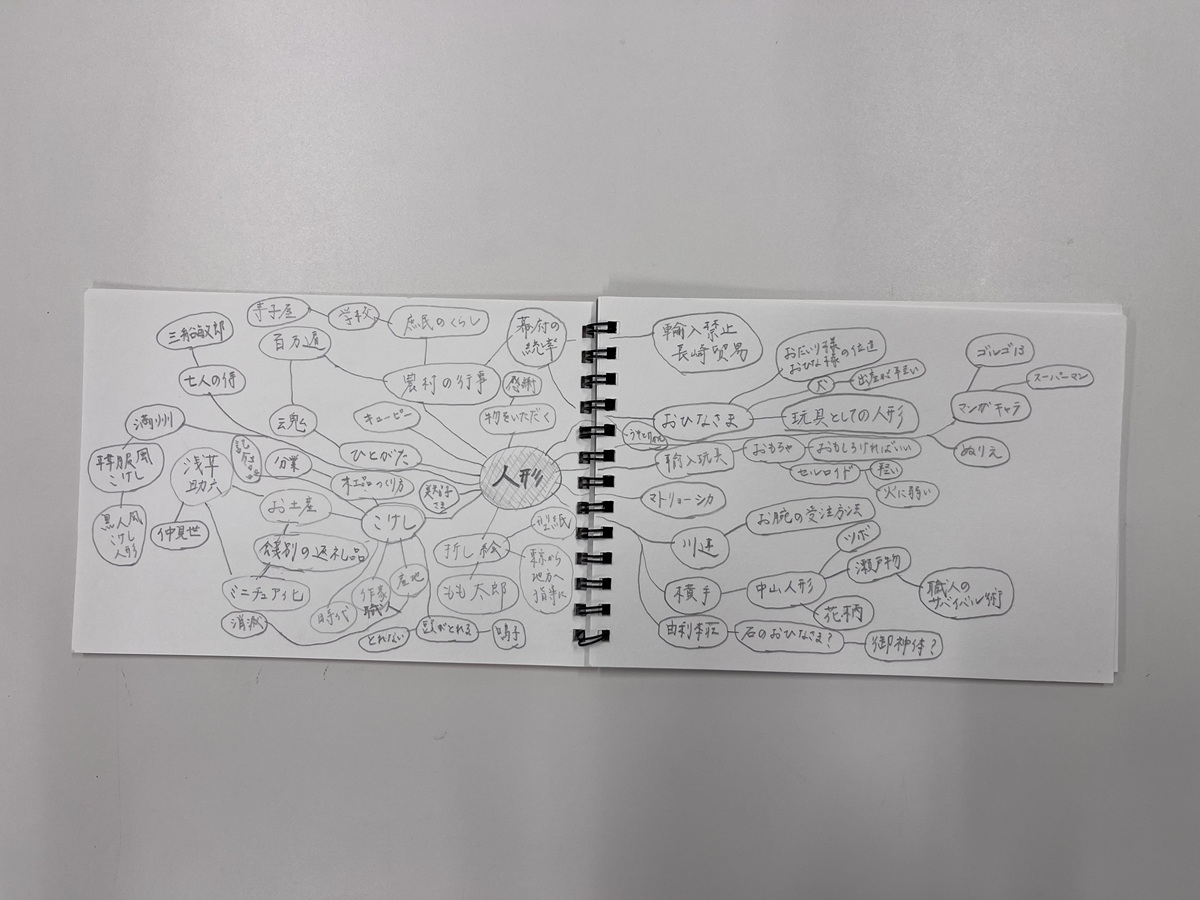 寺子屋
学校
庶民のくらし
幕府の
統率
三船敏郎
百万遍
農村の行事
感謝
七人の侍
キューピー
物をいただく
満州
魂
ひとがた
人形
韓服風
こけし
浅草
助六
分業
木工品つくり方
お土産
こけし
型紙
黒人風
こけし
人形
仲見世
餞別の返礼品
押し絵
東京から
地方へ
ミニチュア化
時代
作家
職人
産地
もも太郎
消滅
とれない
首がとれる
鳴子
輸入禁止
長崎貿易
おだいり様
おひな様の位置
犬
出産が軽い
ゴルゴ13
スーパーマン
マンガキャラ
おひなさま
玩具としての人形
輸入玩具
おもちゃ
おもしろければいい
ぬりえ
セルロイド
軽い
火に弱い
マトリョーシカ
川連
お腕の受注方法
ツボ
横手
中山人形
瀬戸物
職人の
サバイバル術
花柄
由利本荘
石のおひなさま?
御神体?